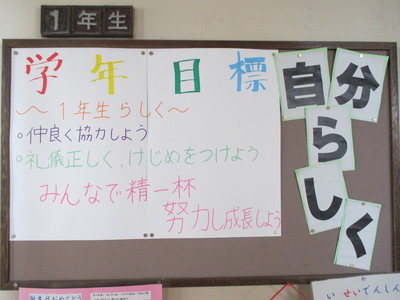 1年生
学年目標
～～1年生らしく～
○仲良く協力しよう
○礼儀正しく、けじめをつけよう
みんなで精一杯
努力し成長しよう
自分らしく
せいでんしん